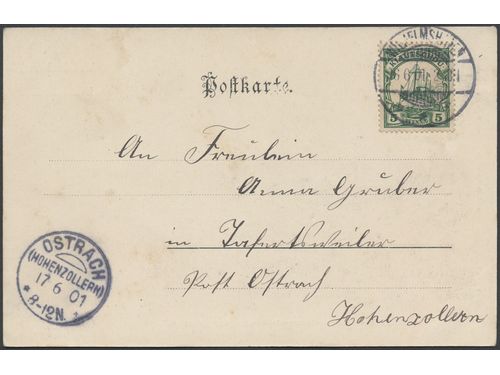 Postkarte.
KIAUTSCHOU
5 5
An Freulein
Anna Gruber
in Tafertsweiler
Post Ostrach
Hohenzollern
OSTRACH
(HOHENZOLLERN)
17 6 01
* 8-12N. *